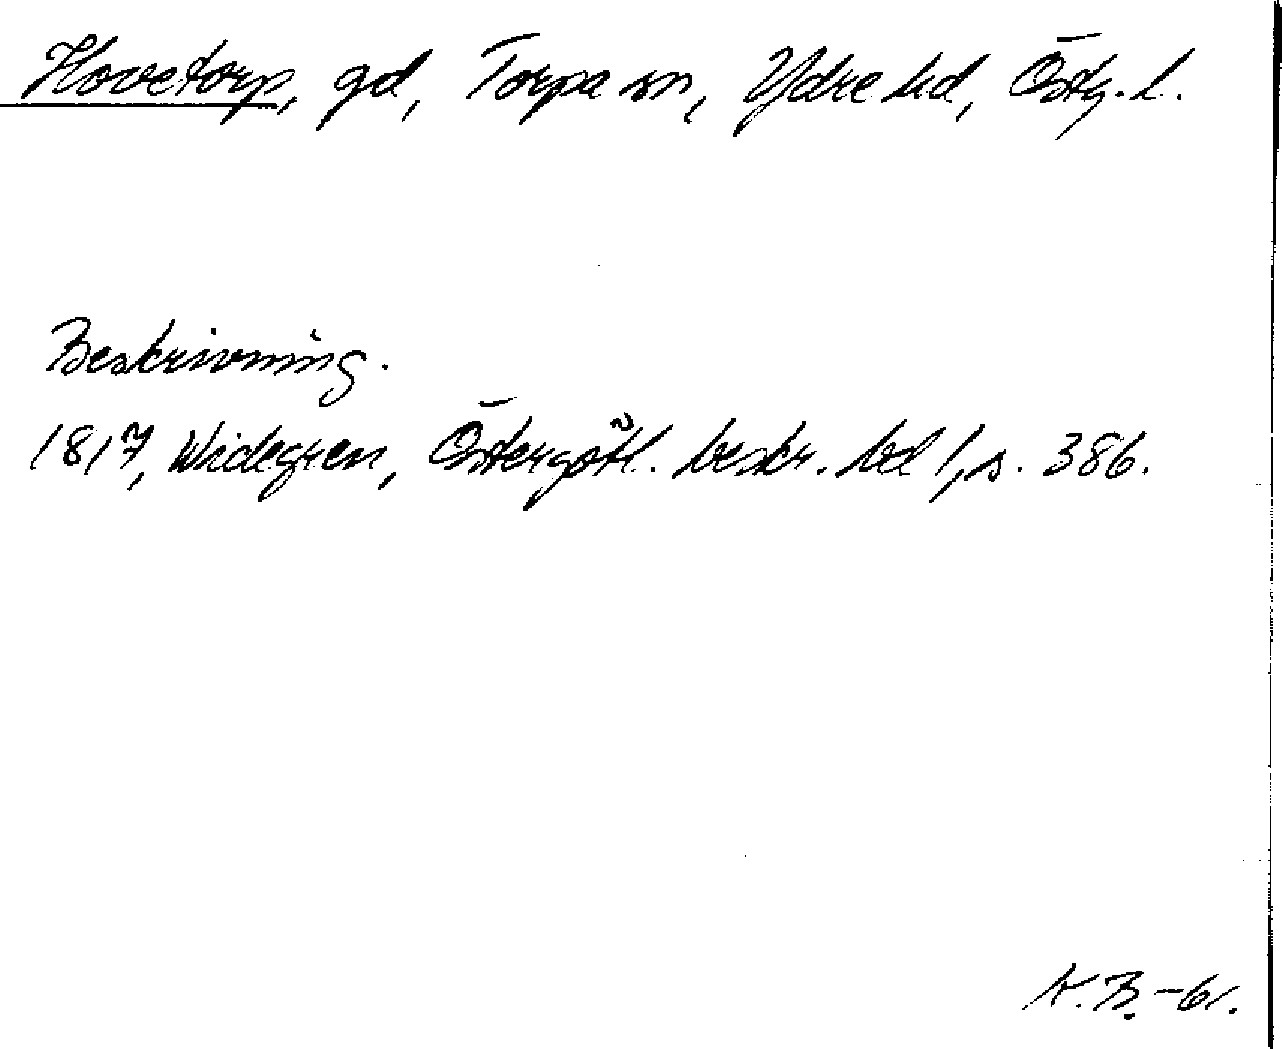 Hovetorp, gd, Torpa sn, Ydre hd, Östg. l.
Beskrivning.
1817, Widegren, Östergötl. beskr. bd 1, s. 386.
K.B. -61.